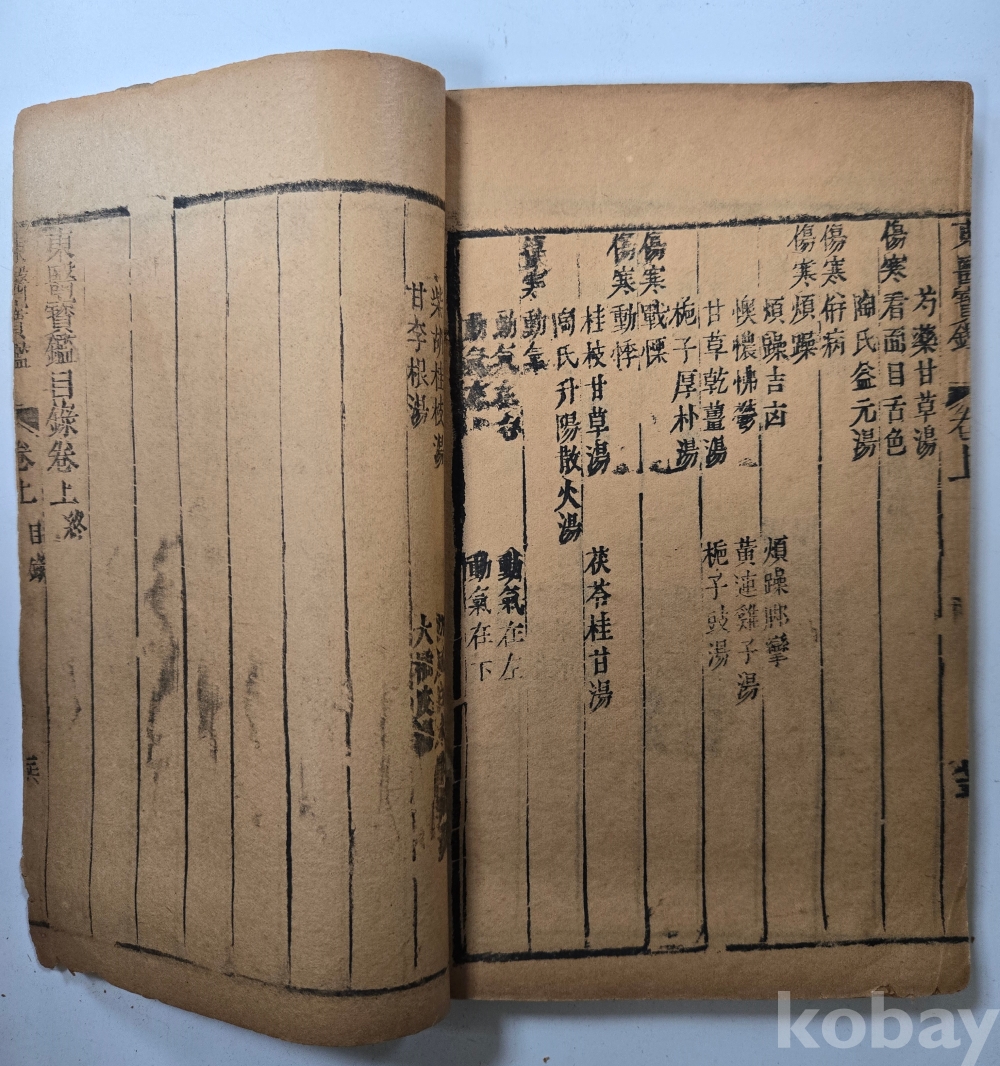 東醫寶鑑 卷上
芍藥甘草湯
傷寒看面目舌色
陶氏益元湯
傷寒倂病
傷寒煩躁
煩躁吉凶 煩躁脚攣
懊憹怫鬱 黃連雞子湯
甘草乾薑湯 梔子豉湯
梔子厚朴湯
傷寒戰慄
傷寒動悸
桂枝甘草湯 茯苓桂甘湯
陶氏升陽散火湯
傷寒動氣
動氣在右 動氣在左
動氣在上 動氣在下
柴胡桂枝湯
甘李根湯
東醫寶鑑目錄卷上 終
東醫寶鑑 卷上 目錄
kobay